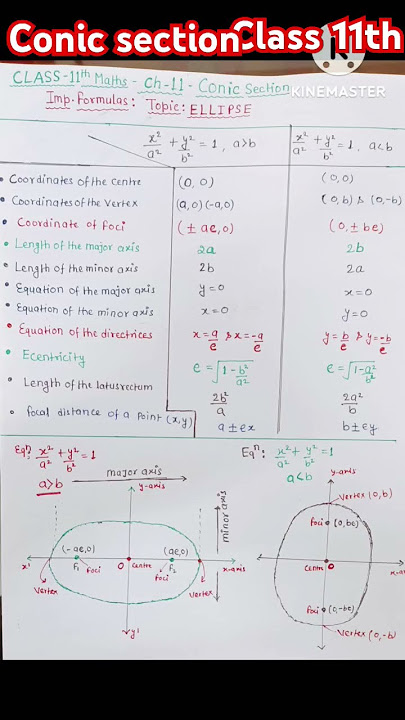 Conic section Class 11th
CLASS-11th Maths - Ch-11 - Conic Section
KINEMASTER
Imp. Formulas: Topic: ELLIPSE
x²/a² + y²/b² = 1, a>b x²/a² + y²/b² = 1, a<b
• Coordinates of the centre (0,0) (0,0)
• Coordinates of the Vertex (a,0) (-a,0) (0,b) & (0,-b)
• Coordinate of foci (± ae,0) (0,± be)
• Length of the major axis 2a 2b
• Length of the minor axis 2b 2a
• Equation of the major axis y=0 x=0
• Equation of the minor axis x=0 y=0
• Equation of the directrices x=a/e & x=-a/e y=b/e & y=-b/e
• Ecentricity e = √1-b²/a² e = √1-a²/b²
• Length of the latus rectum 2b²/a 2a²/b
• focal distance of a point (x,y) a±ex b±ey
Eqⁿ: x²/a² + y²/b² = 1 Eqⁿ: x²/a² + y²/b² = 1
a>b major axis a<b
y-axis y-axis
minor axis
Vertex (0,b)
foci (0,be)
(-ae,0) (ae,0)
x' F₁ foci O Centre foci F₂ x-axis Centre O
Vertex Vertex
foci (0,-be)
y' Vertex (0,-b)